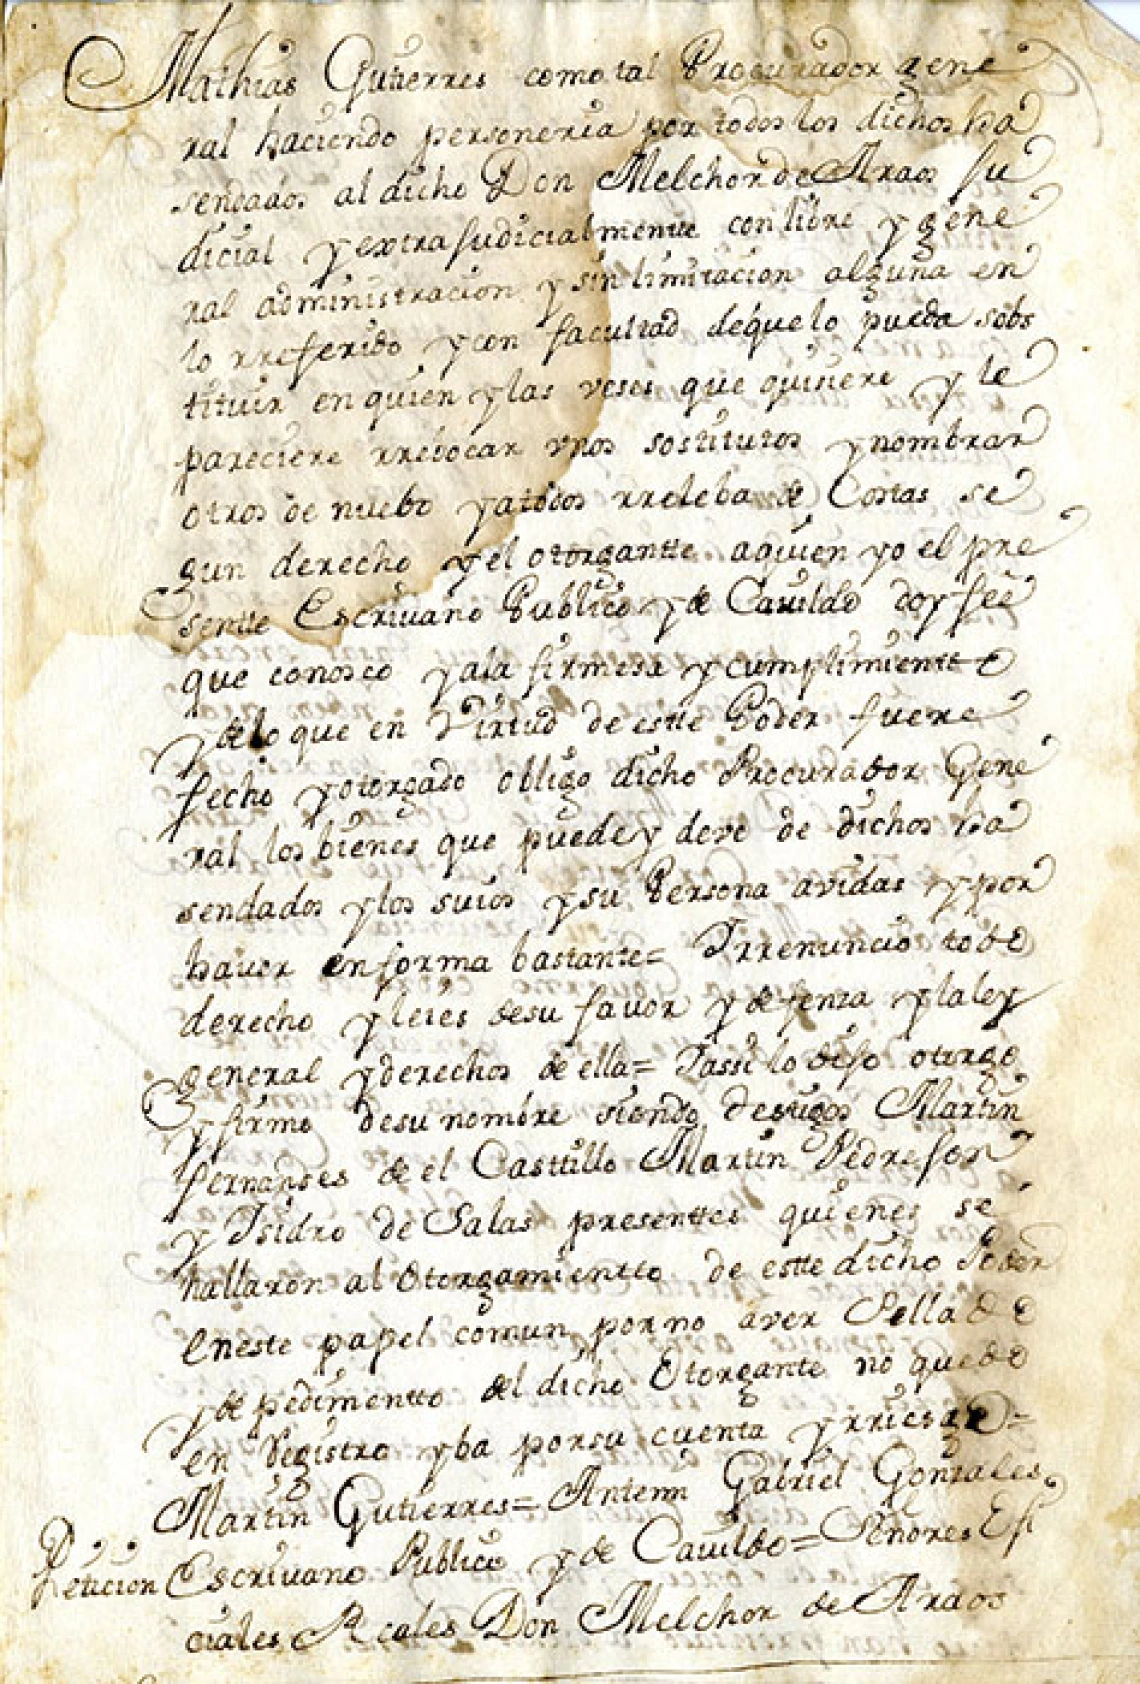 Mathias Gutierres como tal Procurador gene
ral haciendo personeria por todos los dichos ha
sendados al dicho Don Melchor de Araos Ju
dicial y extrajudicialmentte con libre y gene
ral administracion y sin limitacion alguna en
lo rreferido y con facultad de que lo pueda sobs
tituir en quien y las veses que quisiere y le
pareciere rrebocar vnos sostitutos y nombrar
otros de nuebo y a todos rreleba de Costas se
gun derecho y el otorgantte a quien yo el pre
sentte Escriuano Publico y de Cauildo doy fee
que conosco y a la firmesa y cumplimientto
y de lo que en Virtud de estte Poder fuere
fecho y otorgado obligo dicho Procurador Gene
ral los bienes que puede y deve de dichos ha
sendados y los suios y su Persona avidas y por
hauer en forma bastante= Y rrenuncio todo
derecho y leies de su favor y defenza y la ley
general y derechos de ella= Y assi lo dijo otorgo
y firmo de su nombre siendo testigos Martin
fernandes de el Casttillo Martin Pedro
y Isidro de Salas presenttes quienes se
hallaron al Otorgamientto de estte dicho Poder
en este papel comun por no aver Sellado
y de pedimentto del dicho Otorgante no quedo
en Registro y ba por su cuenta y rriesgo=
Martin Gutierres= Antemi Gabriel Gonzales
Peticion Escriuano Publico y de Cauildo= Señores Ofi
ciales Reales Don Melchor de Araos